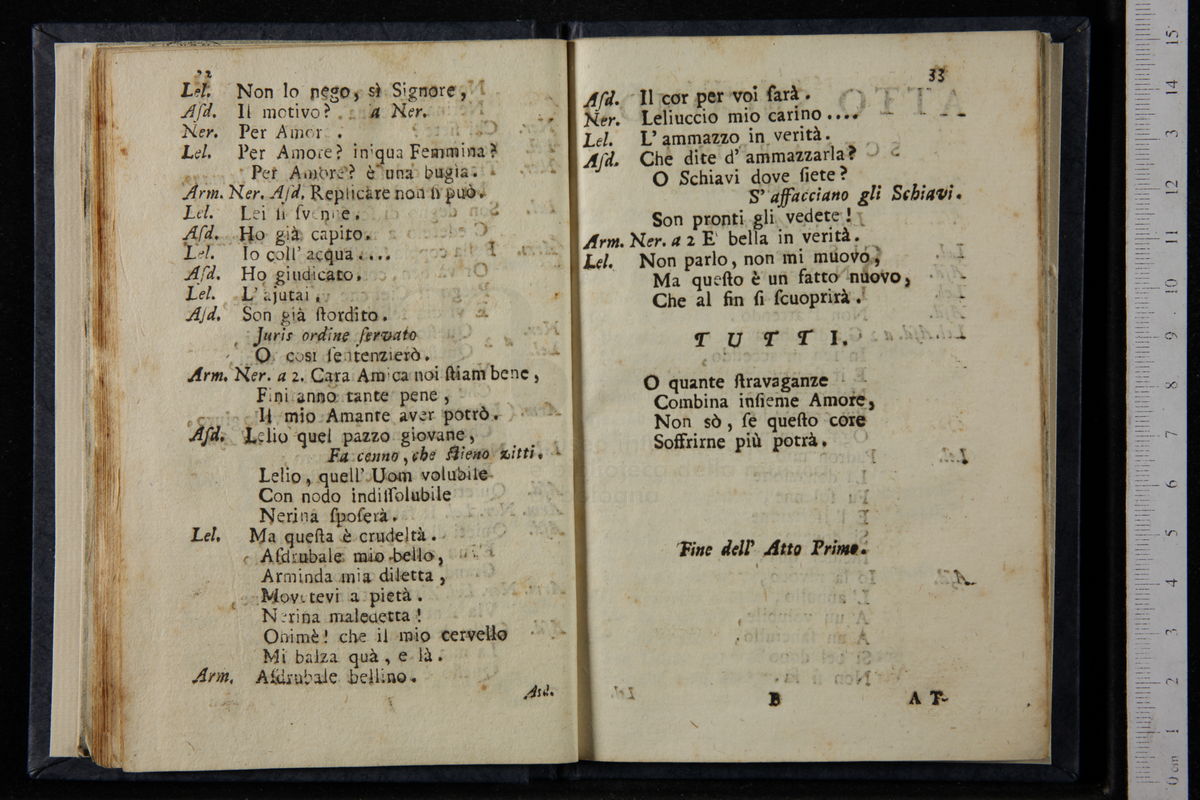 32
Lel. Non lo nego, sì Signore,
Aſd. Il motivo? a Ner.
Ner. Per Amor.
Lel. Per Amore? iniqua Femmina?
Per Amore? è una bugia.
Arm. Ner. Aſd. Replicare non ſi può.
Lel. Lei ſi ſvenne.
Aſd. Ho già capito.
Lel. Io coll' acqua....
Aſd. Ho giudicato.
Lel. L' ajutai.
Aſd. Son già ſtordito.
Juris ordine ſervato
O così ſentenzierò.
Arm. Ner. a 2. Cara Amica noi ſtiam bene,
Fini anno tante pene,
Il mio Amante aver potrò.
Aſd. Lelio quel pazzo giovane,
Fa cenno, che ſtieno zitti.
Lelio, quell' Uom volubile
Con nodo indiſſolubile
Nerina ſpoſerà.
Lel. Ma queſta è crudeltà.
Aſdrubale mio bello,
Arminda mia diletta,
Movetevi a pietà.
Nerina maledetta!
Ohimè! che il mio cervello
Mi balza quà, e là.
Arm. Aſdrubale bellino.
Asd.
33
Aſd. Il cor per voi ſarà.
Ner. Leliuccio mio carino....
Lel. L' ammazzo in verità.
Aſd. Che dite d' ammazzarla?
O Schiavi dove ſiete?
S' affacciano gli Schiavi.
Son pronti gli vedete!
Arm. Ner. a 2 E' bella in verità.
Lel. Non parlo, non mi muovo,
Ma queſto è un fatto nuovo,
Che al fin ſi ſcuoprirà.
TUTTI.
O quante ſtravaganze
Combina inſieme Amore,
Non sò, ſe queſto core
Soffrirne più potrà.
Fine dell' Atto Primo.
B AT-